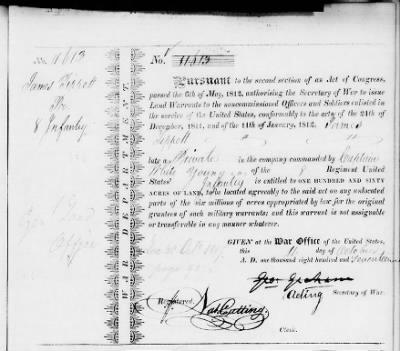 No. 11613
James Tippett
8 Infantry
No. 11613
WAR DEPARTMENT
PURSUANT to the second section of an Act of Congress,
passed the 6th of May, 1812, authorising the Secretary of War to issue
Land Warrants to the noncommissioned Officers and Soldiers enlisted in
the service of the United States, conformably to the acts of the 24th of
December, 1811, and of the 11th of January, 1812. James
Tippett
late a Private in the company commanded by Captain
White Young of the 8 Regiment United
States' Infantry is entitled to ONE HUNDRED AND SIXTY
ACRES OF LAND, to be located agreeably to the said act on any unlocated
parts of the six millions of acres appropriated by law for the original
grantees of such military warrants; and this warrant is not assignable
or transferable in any manner whatever.
GIVEN at the War Office of the United States,
this day of October
A. D. one thousand eight hundred and Seventeen
Geo: Graham
Acting Secretary of War.
Registered.
Nath Cutting
Clerk.